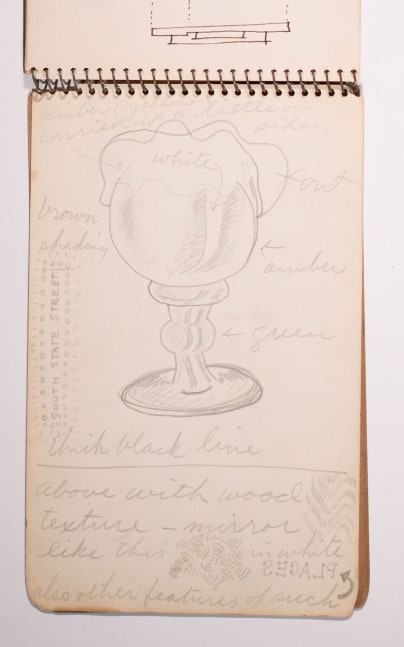 amber (yellow) a little on
carried up a little on sides
white
out
brown
shading
amber
SOUTH STATE STREET
green
thick black line
above with wood
texture – mirror
like this in white
PLACES
also other features of such